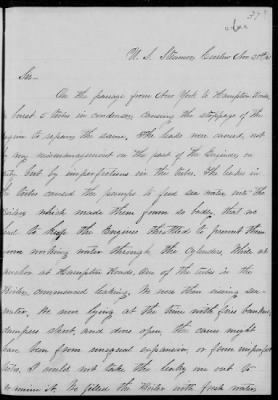 U. S. Steamer, Nov 21st
Sir
On the passage from New York to Hampton Roads
burst 5 tubes in condenser, causing the stoppage of the
to repair the same, The leaks were caused, not
by any mismanagement on the part of the Engineer on
but by imperfections in the tubes. The leaks in
the tubes caused the pumps to feed sea water into the
which made them foam so badly, that we
had to keep the Engines throttled to prevent them
from working water through the Cylinders, While at
anchor at Hampton Roads, one of the tubes in the
commenced leaking. We were then using sea
water, We were lying at the time with fires banked,
dampers shut, and doors open, the cause might
have been from unequal expansion, or from imperfect
tubes, I could not take the leaky one out to
examine it. We filled the boiler with fresh water